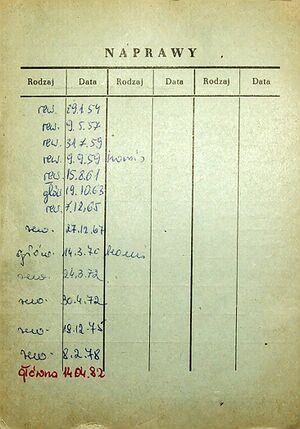 NAPRAWY
Rodzaj Data Rodzaj Data Rodzaj Data
rew. 29.1.54
rew. 9.5.57
rew. 31.7.59
rew. 9.9.59
rew. 15.8.61
głów. 19.10.63
rew. 7.12.65
rew. 27.12.67
14.3.70
rew. 24.3.72
rew. 30.4.72
rew. 18.12.75
rew. 8.2.78
główna 14.04.82